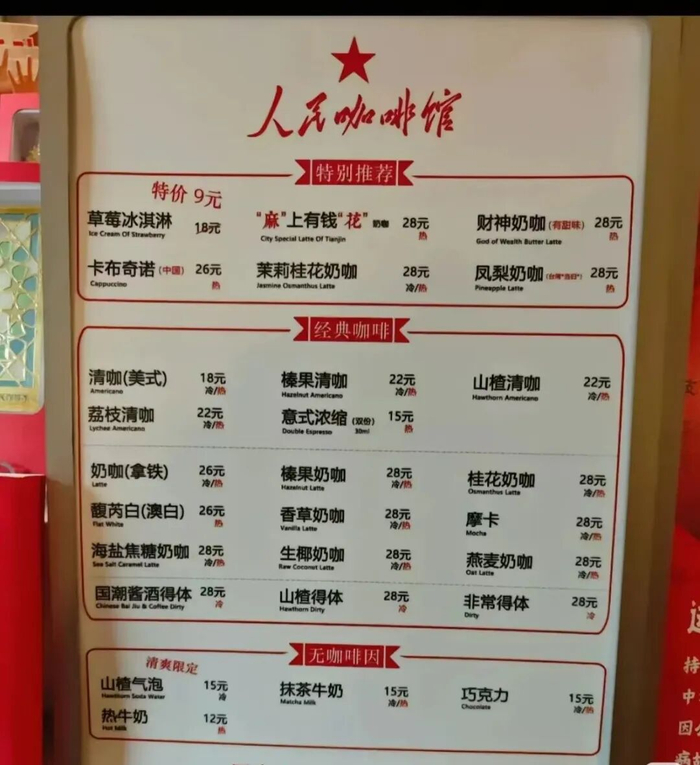 人民咖啡馆
特别推荐
特价 9元
草莓冰淇淋 18元
Ice Cream Of Strawberry
“麻”上有钱“花” 奶咖 28元
City Special Latte Of Tianjin 热
财神奶咖(有甜味) 28元
God of Wealth Butter Latte 热
卡布奇诺(中国) 26元
Cappuccino 热
茉莉桂花奶咖 28元
Jasmine Osmanthus Latte 冷/热
凤梨奶咖 28元
Pineapple Latte 热
经典咖啡
清咖(美式) 18元
Americano 冷/热
榛果清咖 22元
Hazelnut Americano 冷/热
山楂清咖 22元
Hawthorn Americano 冷/热
荔枝清咖 22元
Lychee Americano 冷/热
意式浓缩 (双份) 15元
Double Espresso 30ml 热
奶咖(拿铁) 26元
Latte 冷/热
榛果奶咖 28元
Hazelnut Latte 冷/热
桂花奶咖 28元
Osmanthus Latte 冷/热
馥芮白(澳白) 26元
Flat White 热
香草奶咖 28元
Vanilla Latte 冷/热
摩卡 28元
Mocha 冷/热
海盐焦糖奶咖 28元
Sea Salt Caramel Latte 冷/热
生椰奶咖 28元
Raw Coconut Latte 冷/热
燕麦奶咖 28元
Oat Latte 冷/热
国潮酱酒得体 28元
Chinese Bai Jiu & Coffee Dirty 冷
山楂得体 28元
Hawthorn Dirty 冷
非常得体 28元
Dirty 冷
无咖啡因
清爽限定
山楂气泡 15元
Hawthorn Soda Water 冷
抹茶牛奶 15元
Matcha Milk 冷/热
巧克力 15元
Chocolate 冷/热
热牛奶 12元
Hot Milk 热
持
中
因